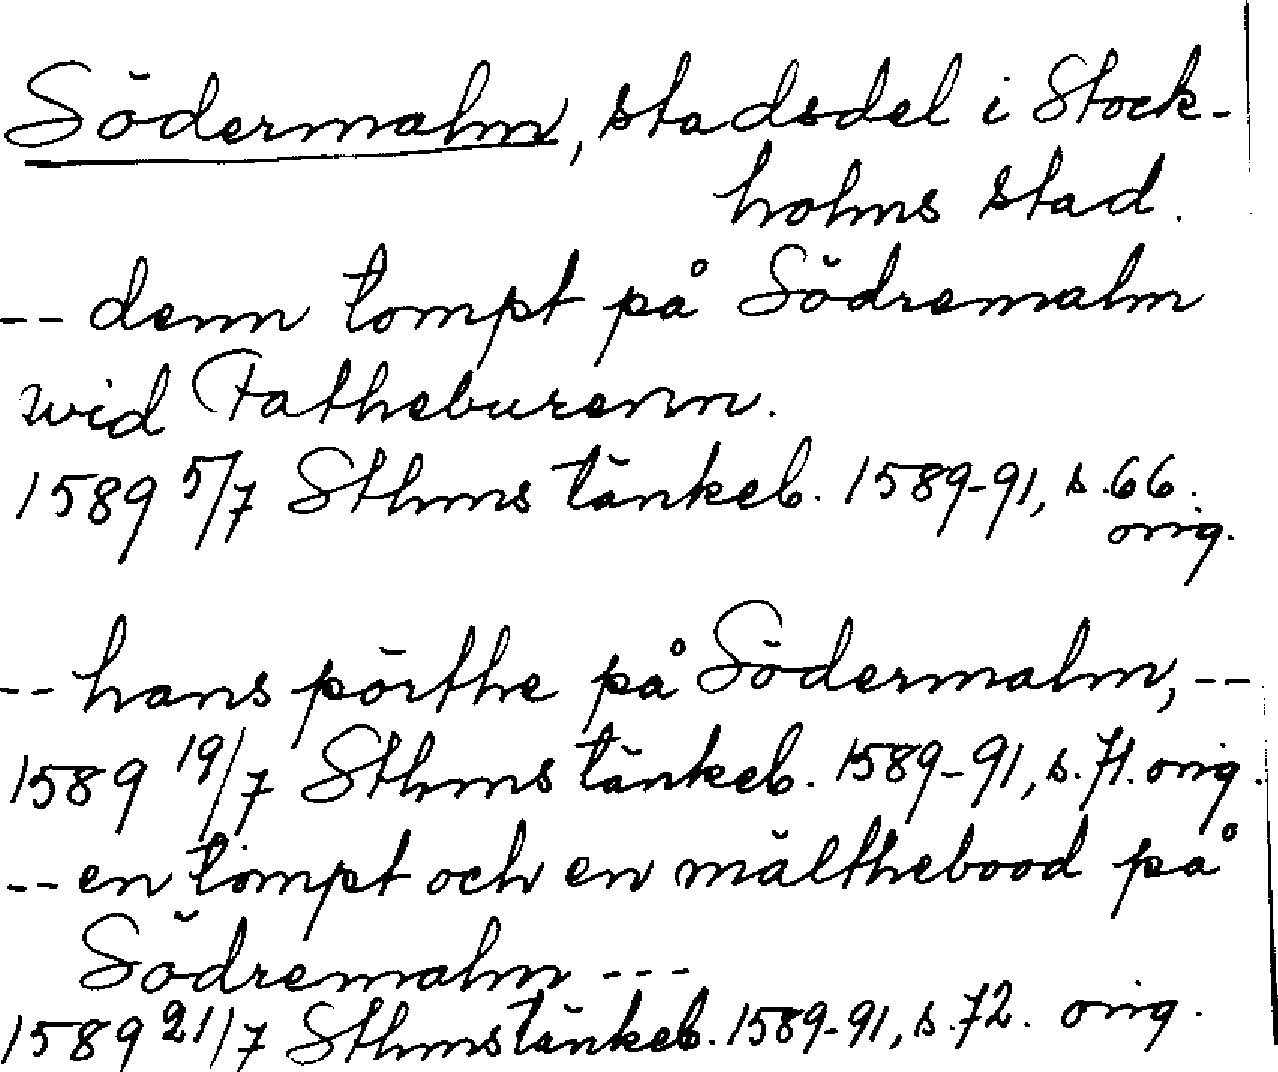 Södermalm, stadsdel i Stock-
holms stad.
-- denn tompt på Södremalm
wid Fatheburenn.
1589 5/7 Sthms tänkeb. 1589-91, s. 66.
orig.
-- hans pörthe på Södermalm, --
1589 19/7 Sthms tänkeb. 1589-91, s. 71. orig.
-- en tompt och en mälthebood på
Södremalm ---
1589 21/7 Sthms tänkeb. 1589-91, s. 72. orig.